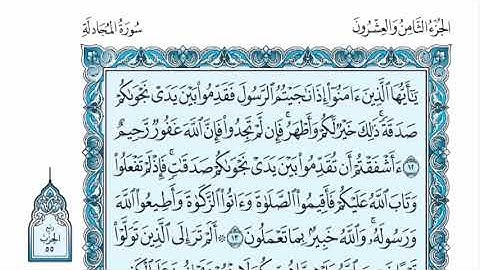 الجزء الثامن والعشرون
سورة المجادلة
يَٰٓأَيُّهَا ٱلَّذِينَ ءَامَنُوٓا۟ إِذَا نَٰجَيْتُمُ ٱلرَّسُولَ فَقَدِّمُوا۟ بَيْنَ يَدَىْ نَجْوَىٰكُمْ
صَدَقَةً ۚ ذَٰلِكَ خَيْرٌ لَّكُمْ وَأَطْهَرُ ۚ فَإِن لَّمْ تَجِدُوا۟ فَإِنَّ ٱللَّهَ غَفُورٌ رَّحِيمٌ
١٢ ءَأَشْفَقْتُمْ أَن تُقَدِّمُوا۟ بَيْنَ يَدَىْ نَجْوَىٰكُمْ صَدَقَٰتٍ ۚ فَإِذْ لَمْ تَفْعَلُوا۟
وَتَابَ ٱللَّهُ عَلَيْكُمْ فَأَقِيمُوا۟ ٱلصَّلَوٰةَ وَءَاتُوا۟ ٱلزَّكَوٰةَ وَأَطِيعُوا۟ ٱللَّهَ
وَرَسُولَهُۥ ۚ وَٱللَّهُ خَبِيرٌۢ بِمَا تَعْمَلُونَ ١٣ ۞ أَلَمْ تَرَ إِلَى ٱلَّذِينَ تَوَلَّوْا۟
ربع
الحزب
٥٥